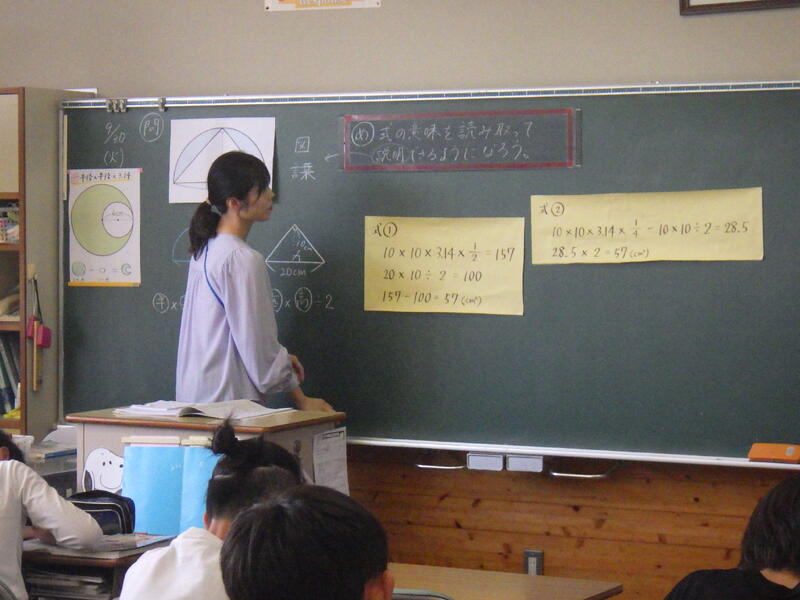 9/20
(火)
P.69
半径×半径×3.14
図
言葉
め 式の意味を読み取って
説明できるようになろう。
10cm
20cm
半×
底×高÷2
式①
10×10×3.14×1/2=157
20×10÷2=100
157-100=57(cm²)
式②
10×10×3.14×1/4-10×10÷2=28.5
28.5×2=57(cm²)